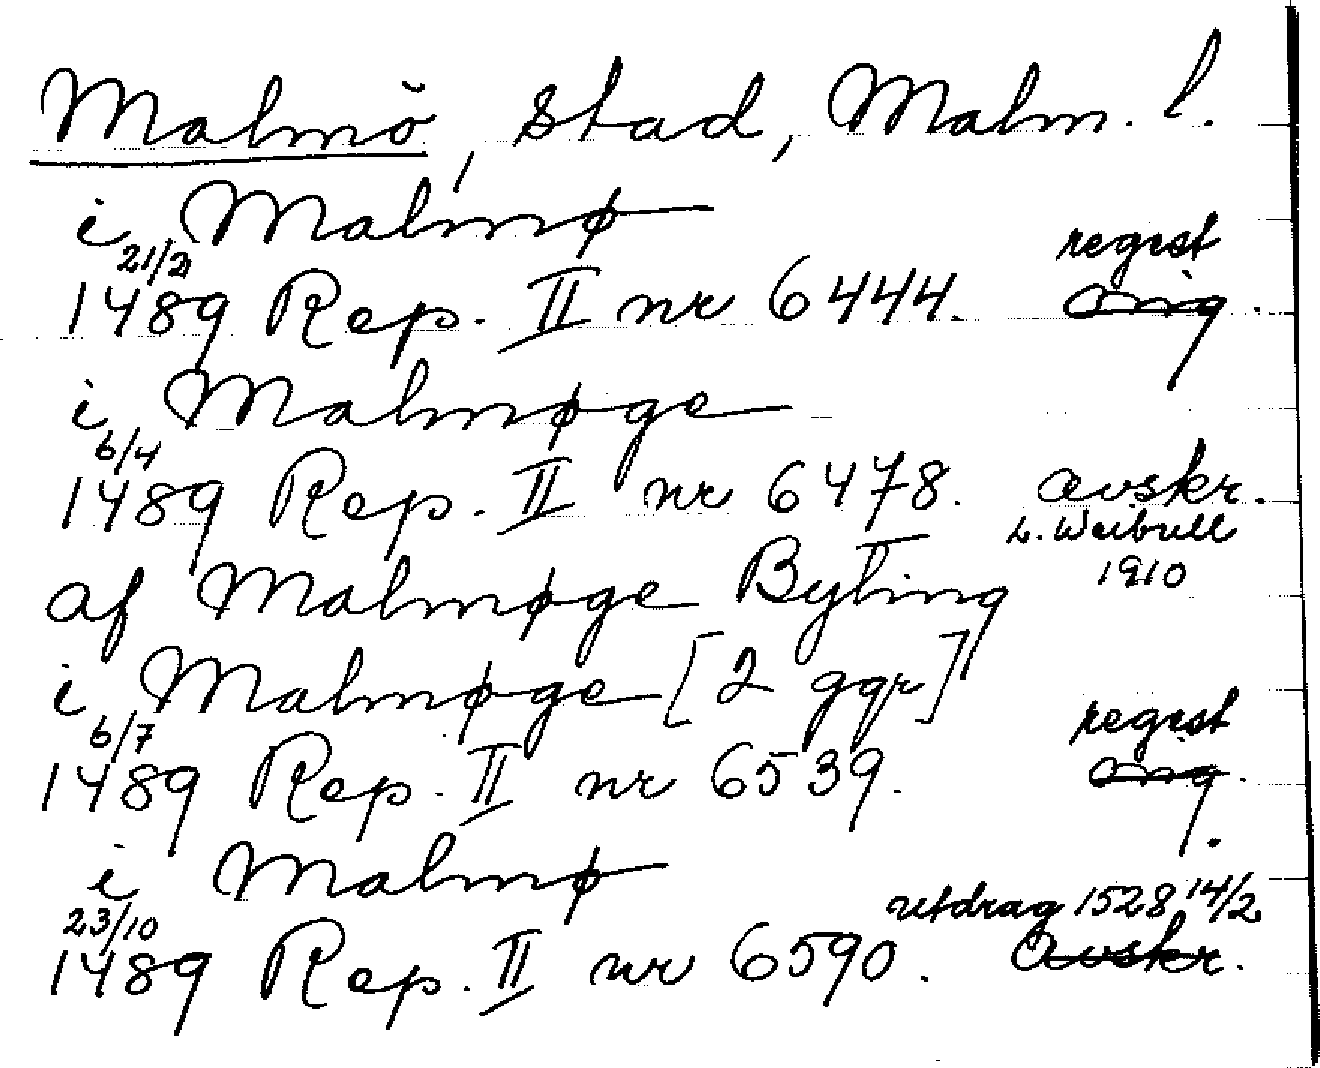 Malmö, stad, Malm. l.
i Malmø
21/2 regist
1489 Rep. II nr 6444. orig.
i Malmøge
6/4
1489 Rep. II nr 6478. avskr.
L. Weibull
1910
af Malmøge Byting
i Malmøge [2 ggr]
6/7 regist
1489 Rep. II nr 6539. orig.
i Malmø
23/10 utdrag 1528 14/2
1489 Rep. II nr 6590. avskr.